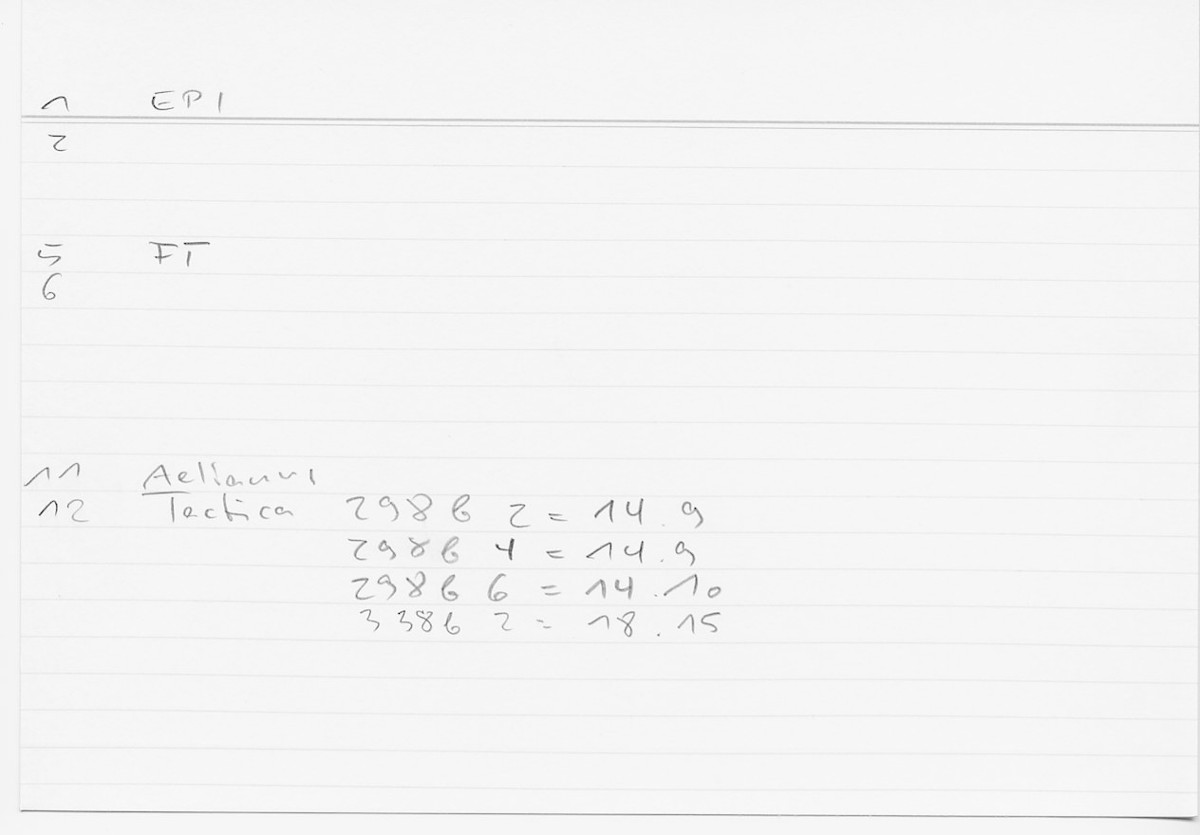 1 EPI
2
5 FT
6
11 Aelianus
12 Tactica 298b 2 = 14.9
298b 4 = 14.9
298b 6 = 14.10
338b 2 = 18.15